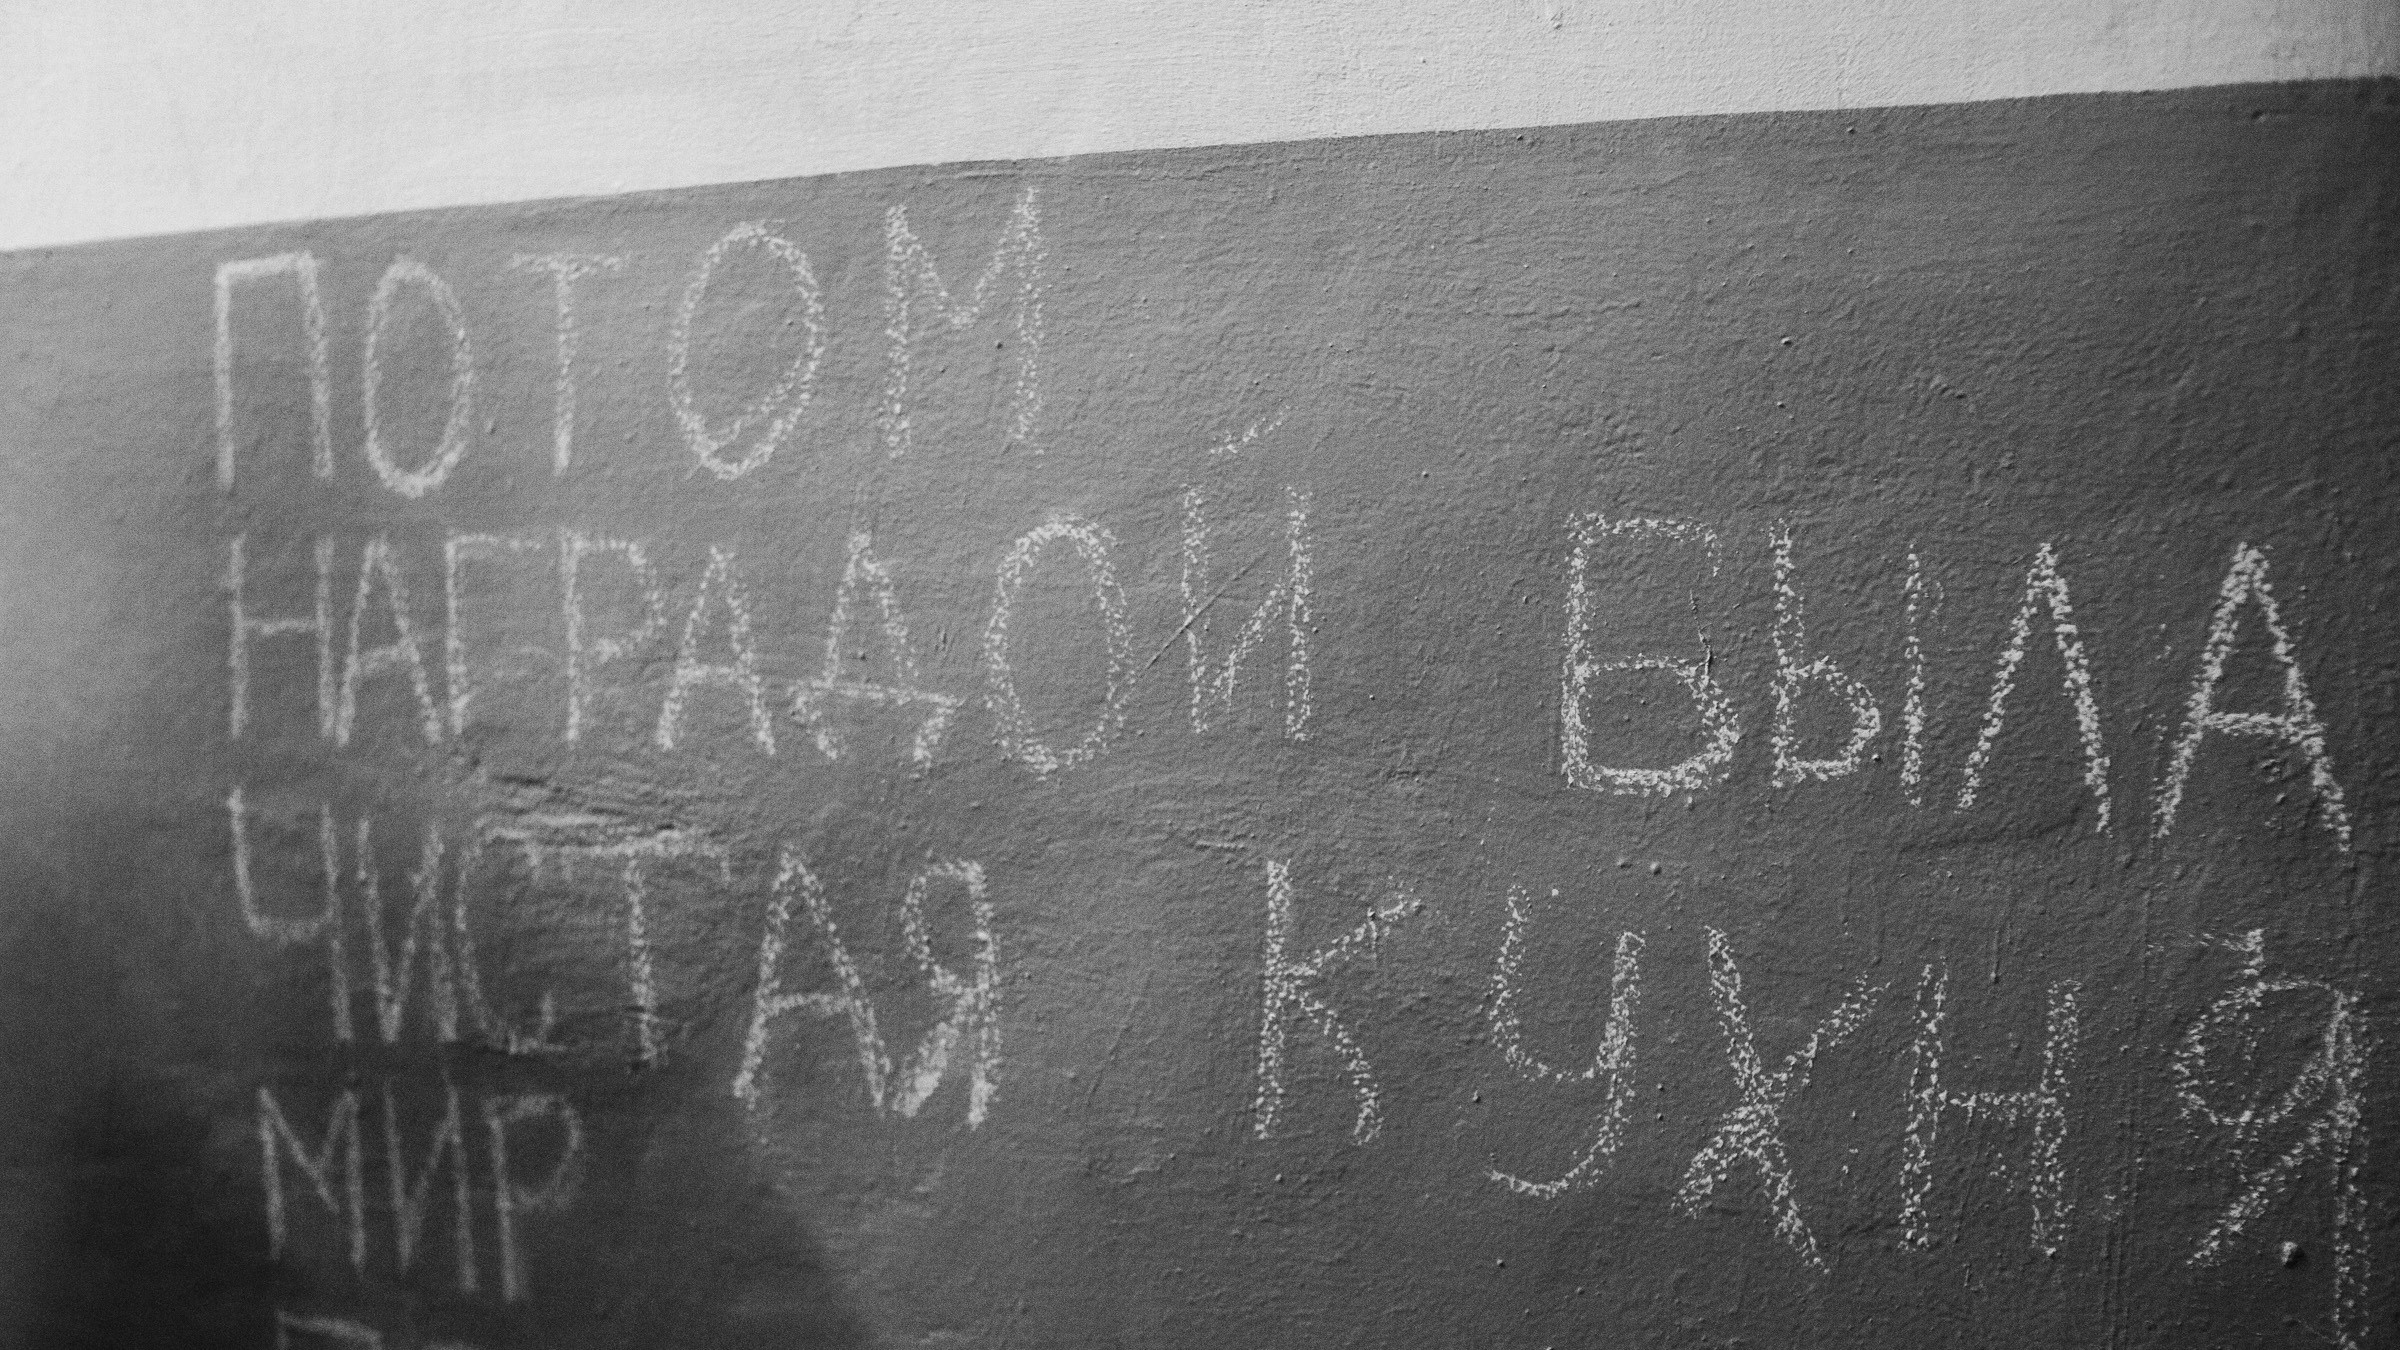 ПОТОМ
НАГРАДОЙ БЫЛА
ЧИСТАЯ КУХНЯ
МИР